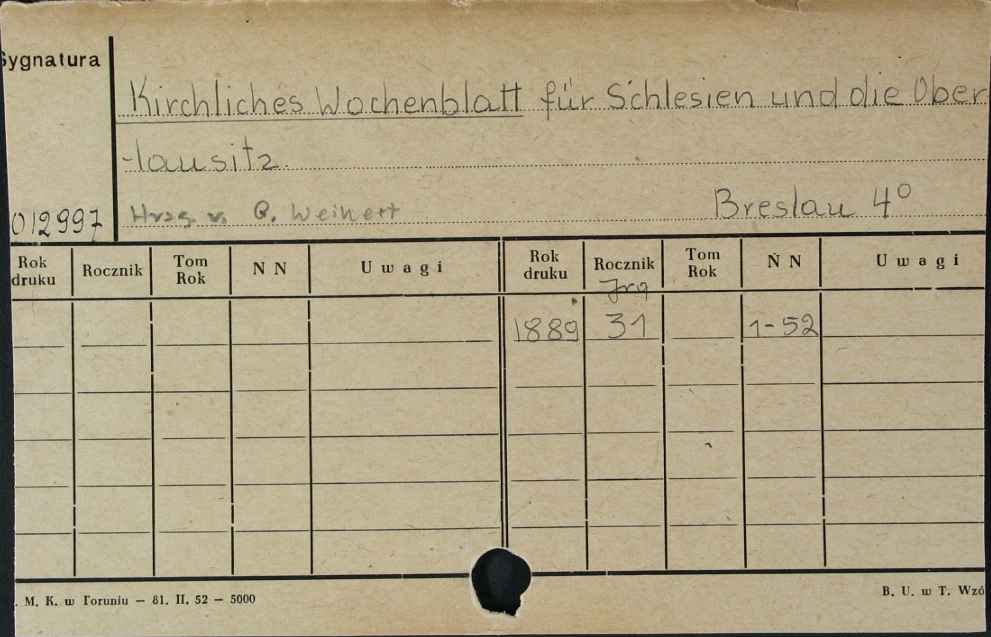 Sygnatura
Kirchliches Wochenblatt für Schlesien und die Ober
-lausitz.
012997 Hrzg v. Q. Weikert Breslau 4°
Rok druku Rocznik Tom Rok N N Uwagi Rok druku Rocznik Tom Rok N N Uwagi
Jrg
1889 31 1-52
. M. K. w Toruniu — 81. II. 52 — 5000 B. U. w T. Wzó